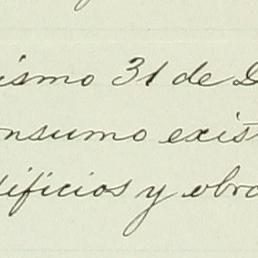 ismo 31 de D
onsumo exis
dificios y obra